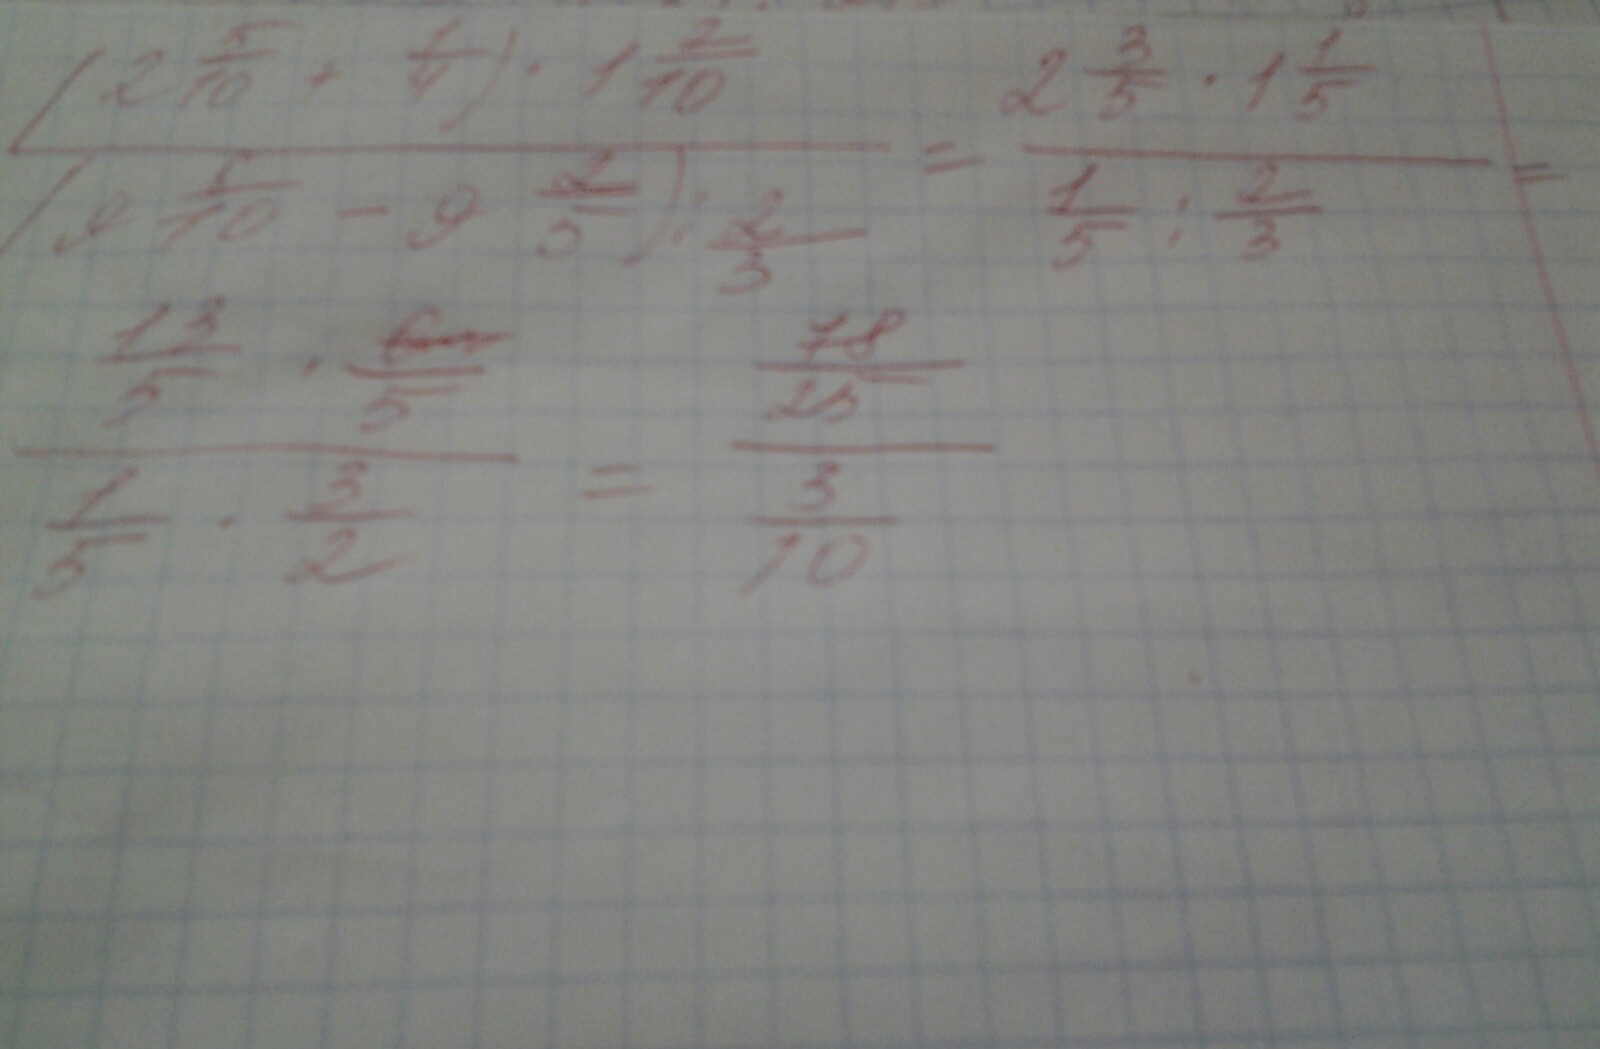 (2 5/10 + 1/4) · 1 2/10 / (9 6/10 - 9 2/5) : 2/3 = 2 3/5 · 1 1/5 / 1/5 : 2/3 =
13/5 · 6/5 / 1/5 · 3/2 = 78/25 / 3/10